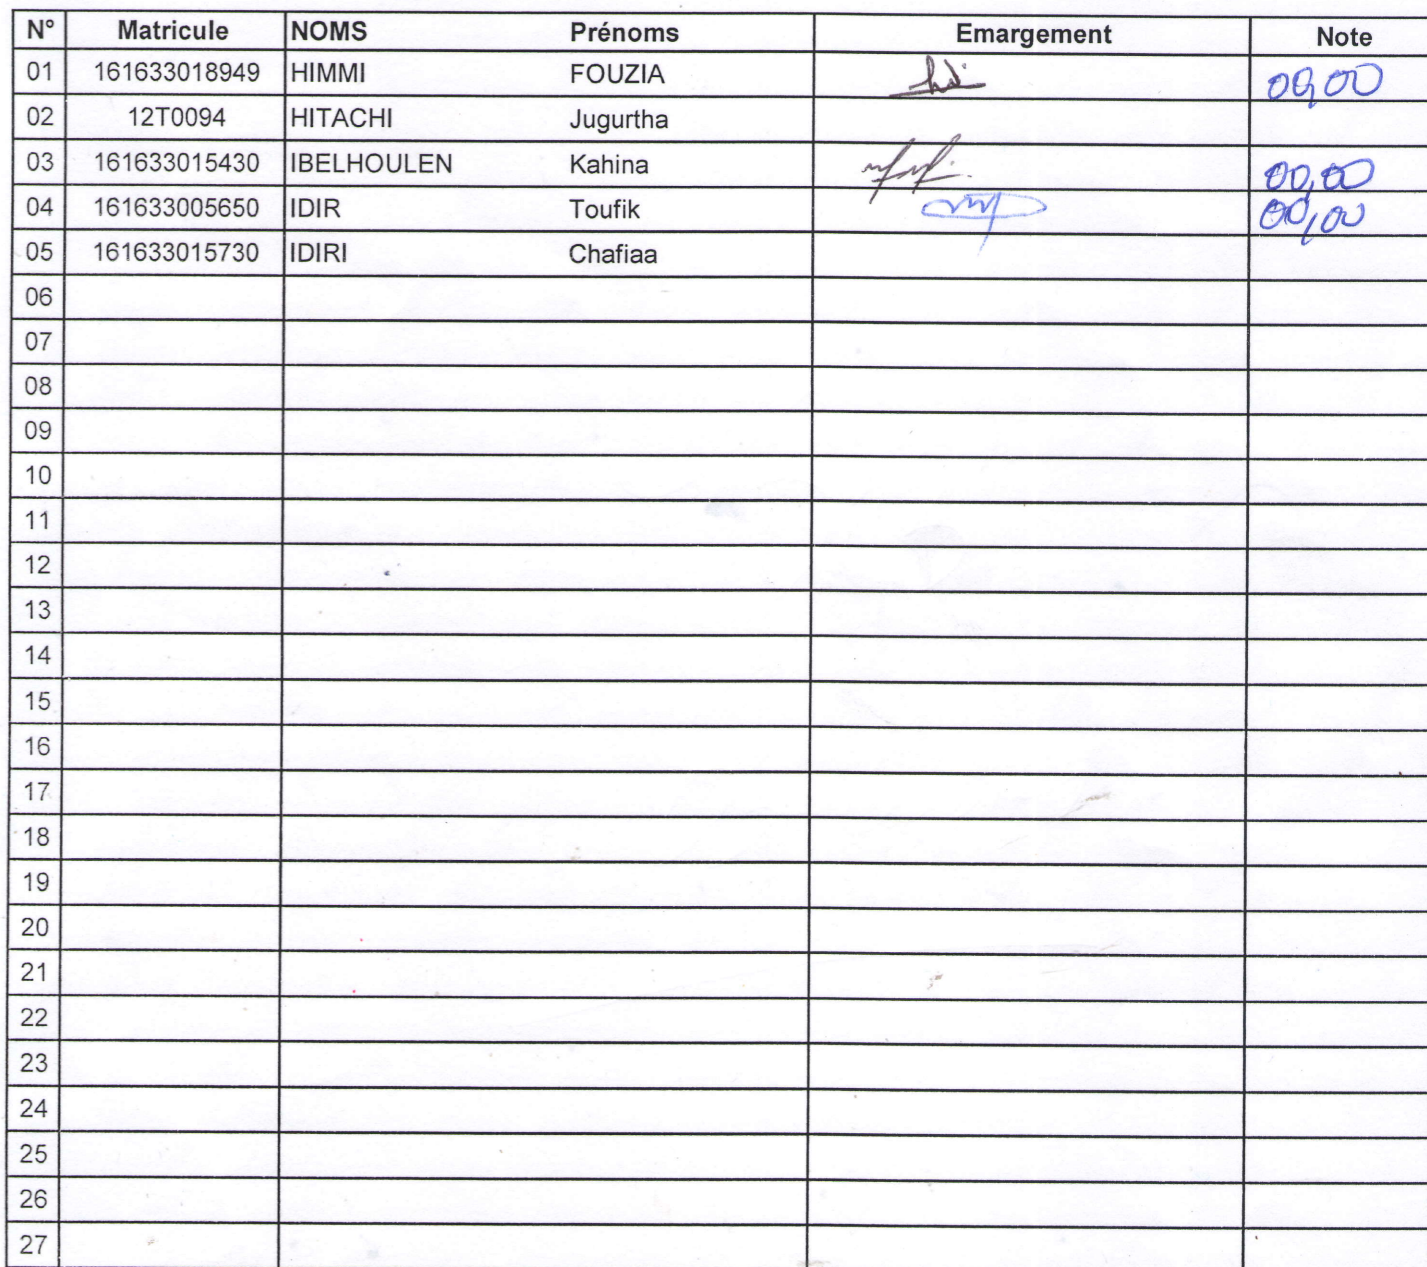 N° Matricule NOMS Prénoms Emargement Note
01 161633018949 HIMMI FOUZIA 00,00
02 12T0094 HITACHI Jugurtha
03 161633015430 IBELHOULEN Kahina 00,00
04 161633005650 IDIR Toufik 00,00
05 161633015730 IDIRI Chafiaa
06
07
08
09
10
11
12
13
14
15
16
17
18
19
20
21
22
23
24
25
26
27